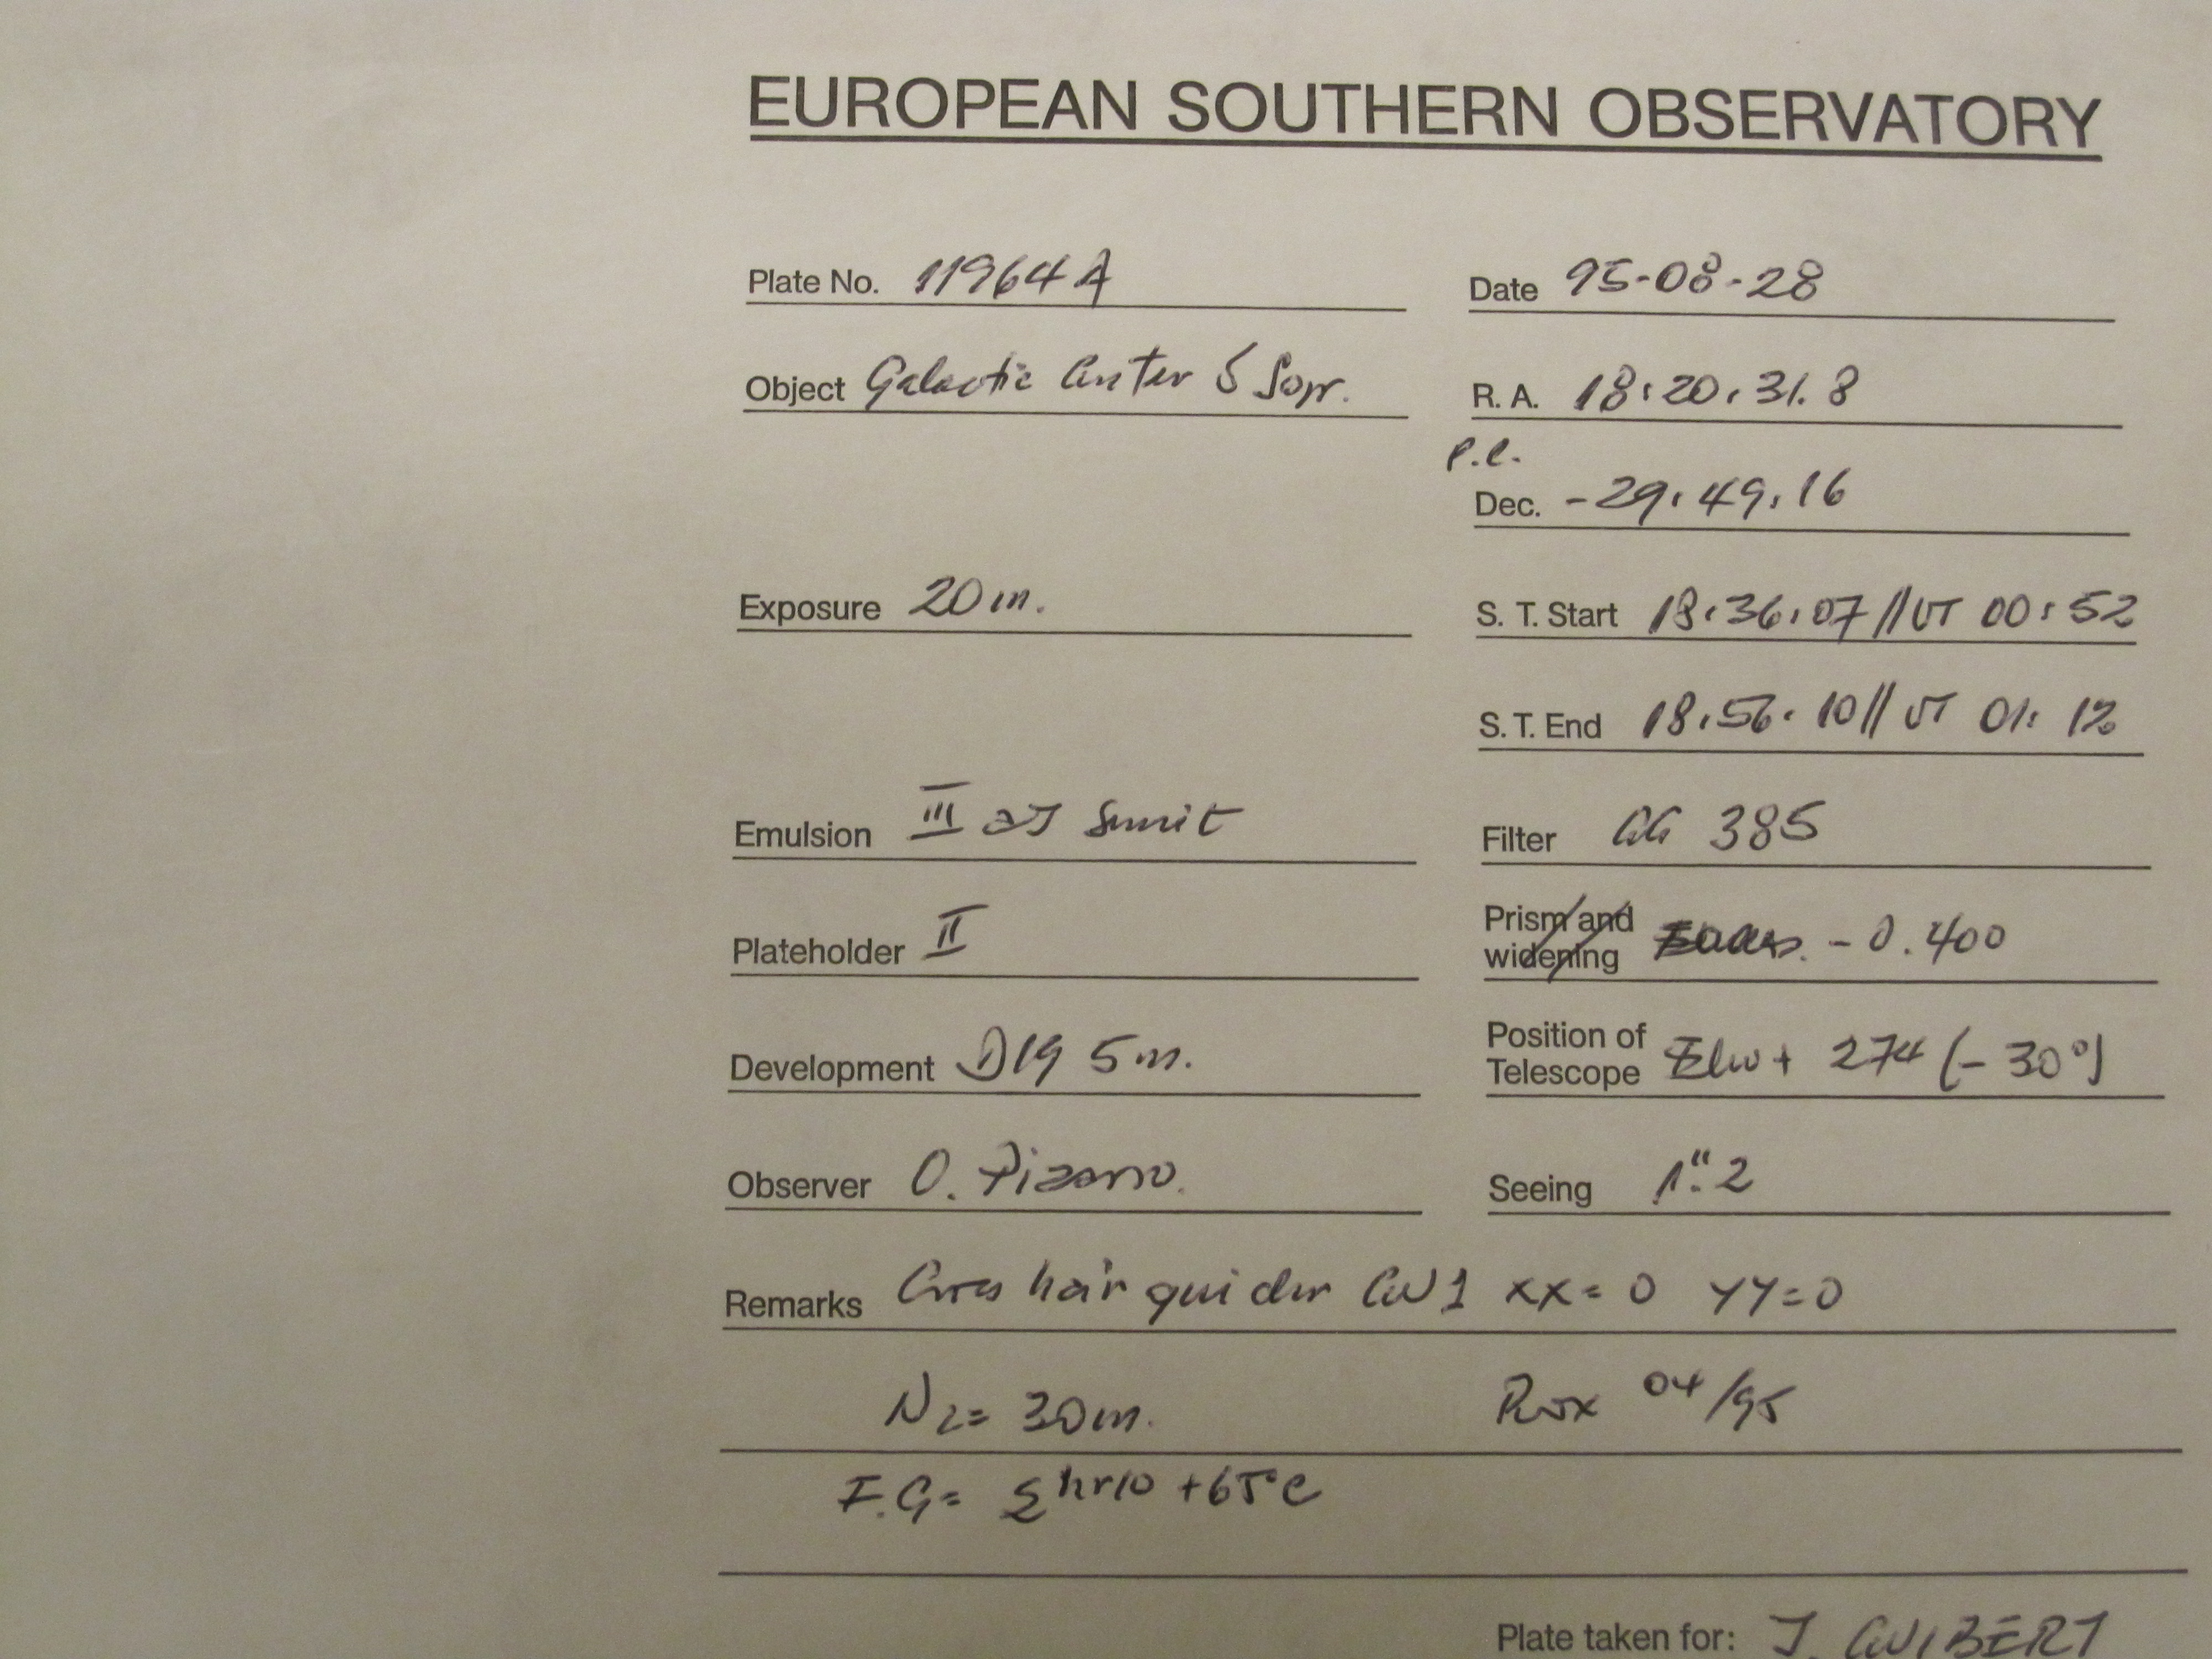 EUROPEAN SOUTHERN OBSERVATORY
Plate No. 11964A
Date 95-08-28
Object Galactic Center 5
R. A. 18:20:31.8
P.e.
Dec. -29:49:16
Exposure 20m.
S. T. Start 18:36:07 // UT 00:52
S. T. End 18:56:10 // UT 01:12
Emulsion III aJ
Filter GG 385
Prism and widening - 0.400
Plateholder II
Development D19 5m.
Position of Telescope + 274 (-30°)
Observer O. Pizarro.
Seeing 1".2
Remarks Cros hair guider 1 XX=0 YY=0
N2= 30m. 04/95
F.G= hr10 +65°C
Plate taken for: J. GUIBERT